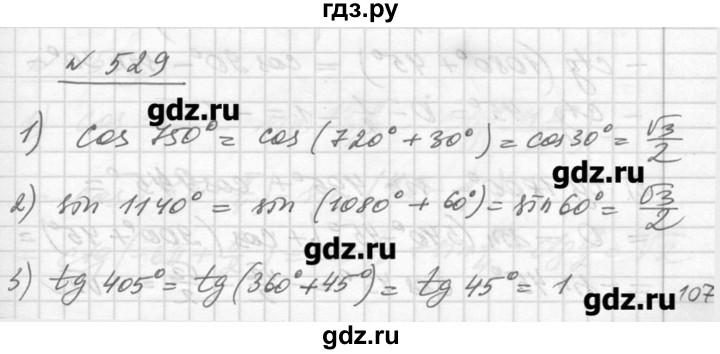 гдз.ру
№ 529
gdz.ru
1) cos 750° = cos (720° + 30°) = cos 30° = √3/2
gdz.ru
2) sin 1140° = sin (1080° + 60°) = sin 60° = √3/2
gdz.ru
3) tg 405° = tg (360° + 45°) = tg 45° = 1
gdz.ru
107
gdz.ru